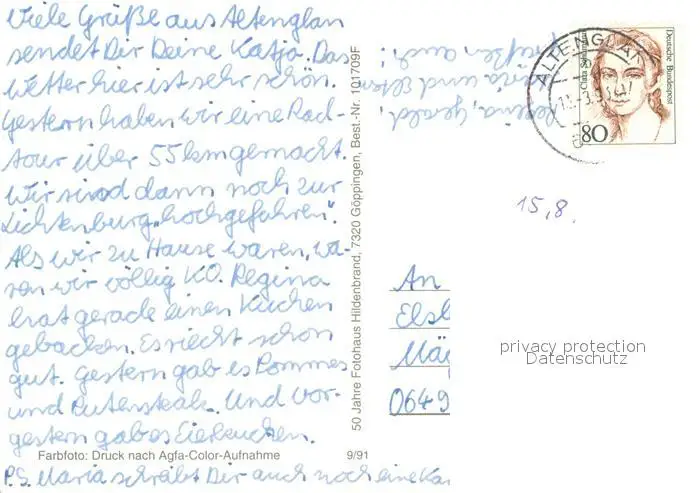 Viele Grüße aus Altenglan
sendet Dir Deine Katja. Das
Wetter hier ist sehr schön.
Gestern haben wir eine Rad-
tour über 55 km gemacht.
Wir sind dann noch zur
Lichtenburg „hochgefahren“.
Als wir zu Hause waren, wa-
ren wir völlig KO. Regina
hat gerade einen Kuchen
gebacken. Es riecht schon
gut. Gestern gab es Pommes
und Putensteak. Und vor-
gestern gab es Eierkuchen.
P.S. Maria schreibt Dir auch noch eine Kar
Farbfoto: Druck nach Agfa-Color-Aufnahme 9/91
50 Jahre Fotohaus Hildenbrand, 7320 Göppingen, Best.-Nr. 101709F
Regina, Gerald,
Maria und
grüßen auch!
ALTENGLAN
Clara Schumann
Deutsche Bundespost
80
15.8.
An
Elsb
Mä
0649
privacy protection
Datenschutz